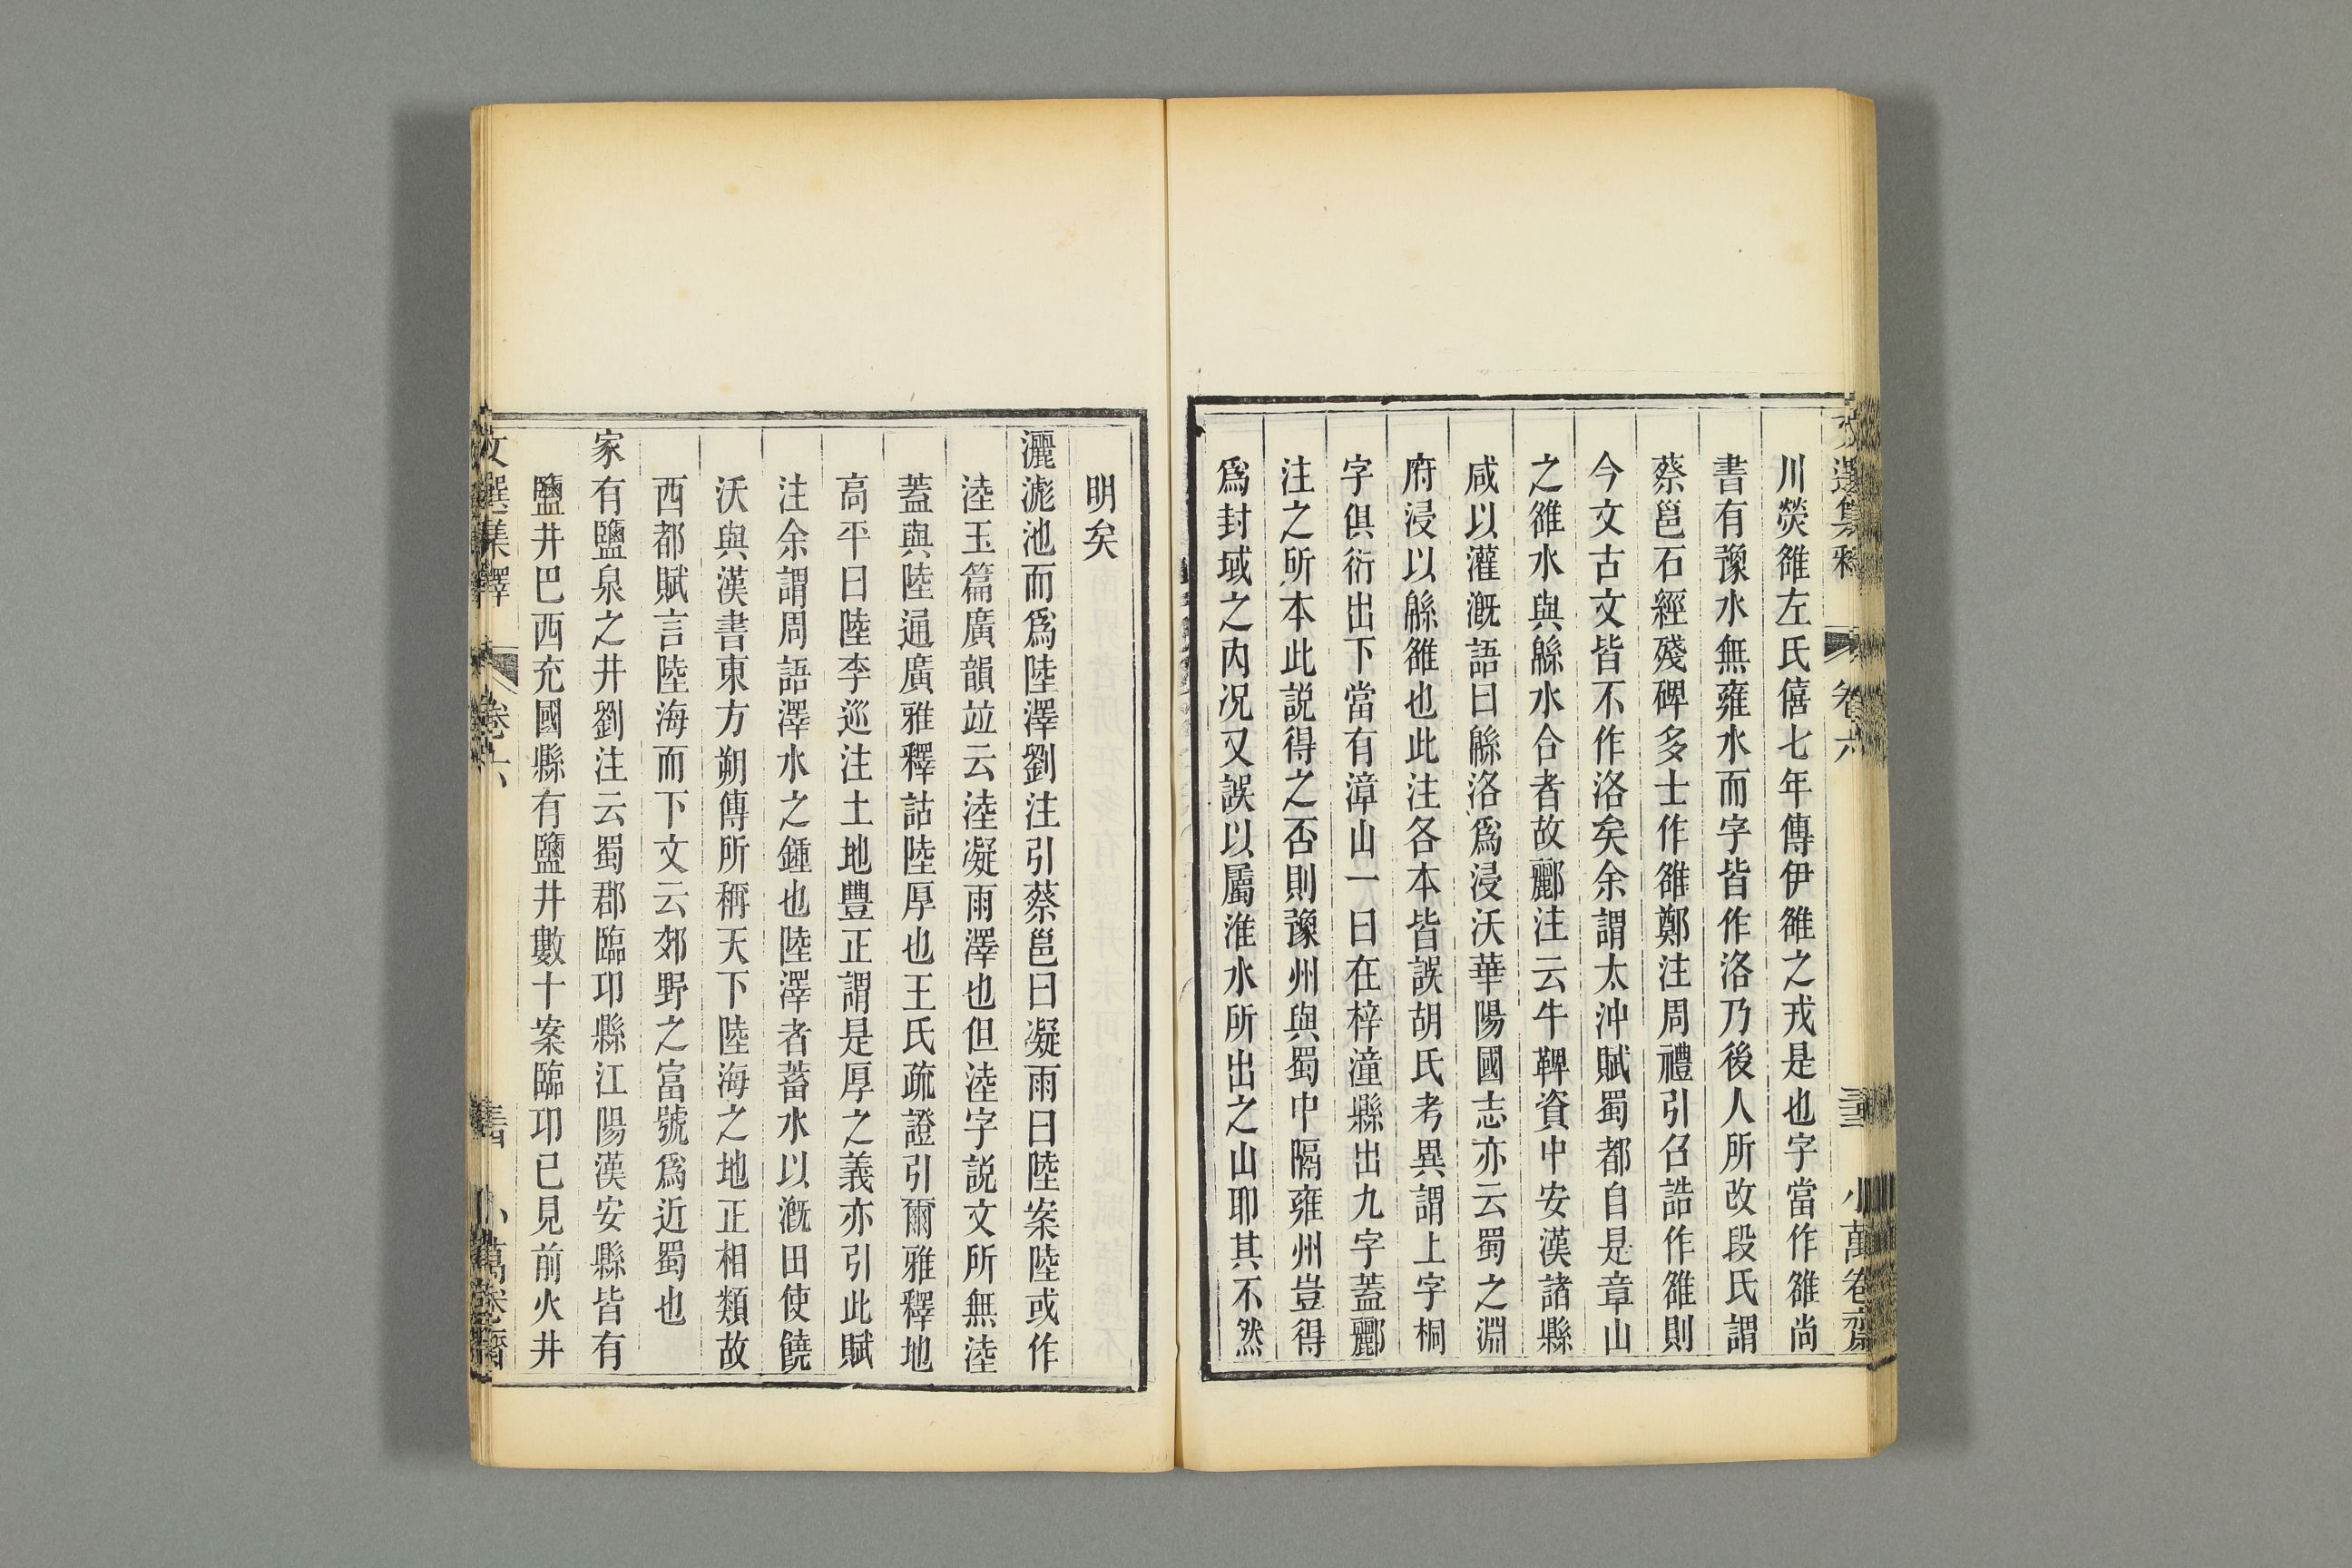 文選集釋 卷六 三三 小萬卷齋
川熒雒左氏僖七年傳伊雒之戎是也字當作雒尚
書有豫水無雍水而字皆作洛乃後人所改段氏謂
蔡邕石經殘碑多士作雒鄭注周禮引召誥作雒則
今文古文皆不作洛矣余謂太沖賦蜀都自是章山
之雒水與緜水合者故酈注云牛鞞資中安漢諸縣
咸以灌溉語曰緜洛爲浸沃華陽國志亦云蜀之淵
府浸以緜雒也此注各本皆誤胡氏考異謂上字桐
字俱衍出下當有漳山一曰在梓潼縣出九字蓋酈
注之所本此説得之否則豫州與蜀中隔雍州豈得
爲封域之内况又誤以屬淮水所出之山耶其不然
明矣
灑滮池而爲陸澤劉注引蔡邕曰凝雨曰陸案陸或作
淕玉篇廣韻竝云淕凝雨澤也但淕字説文所無淕
蓋與陸通廣雅釋詁陸厚也王氏疏證引爾雅釋地
高平曰陸李巡注土地豐正謂是厚之義亦引此賦
注余謂周語澤水之鍾也陸澤者蓄水以溉田使饒
沃與漢書東方朔傳所稱天下陸海之地正相類故
西都賦言陸海而下文云郊野之富號爲近蜀也
家有鹽泉之井劉注云蜀郡臨邛縣江陽漢安縣皆有
鹽井巴西充國縣有鹽井數十案臨邛已見前火井
文選集釋 卷六 小萬卷齋